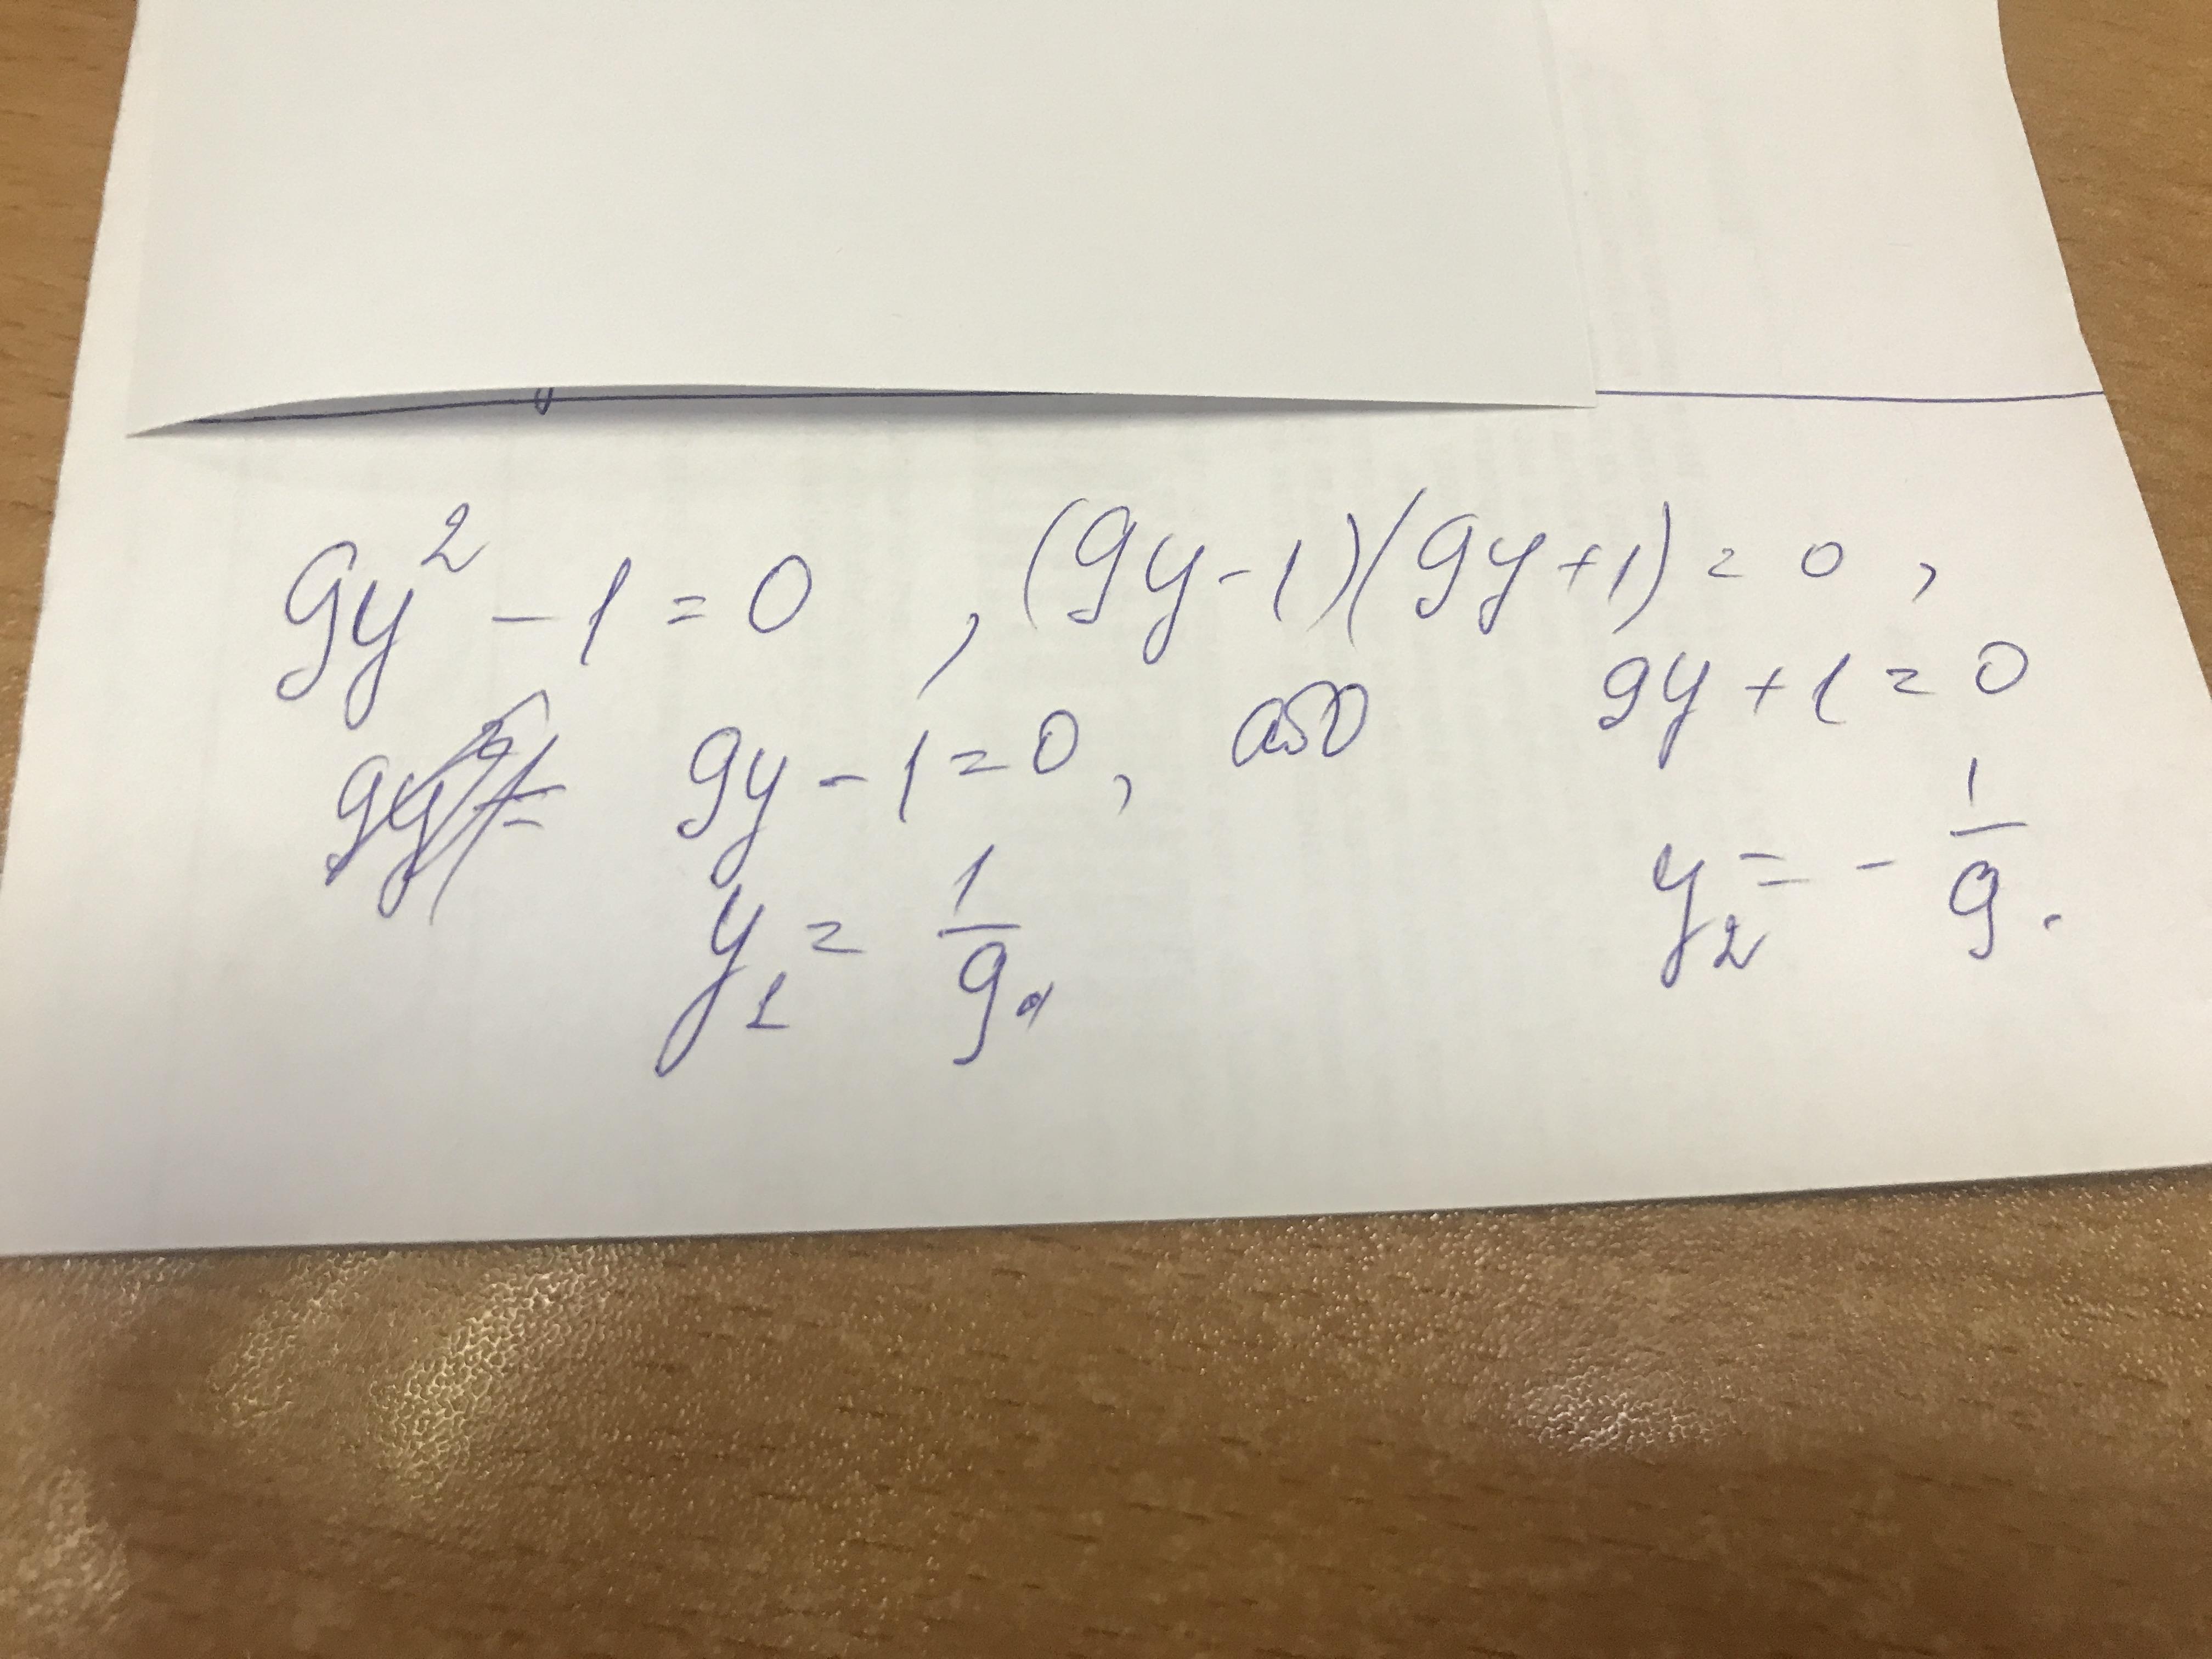 9y² - 1 = 0 , (9y-1)(9y+1) = 0 ,
9y - 1 = 0 , або 9y + 1 = 0
y₁ = 1/9. y₂ = - 1/9.